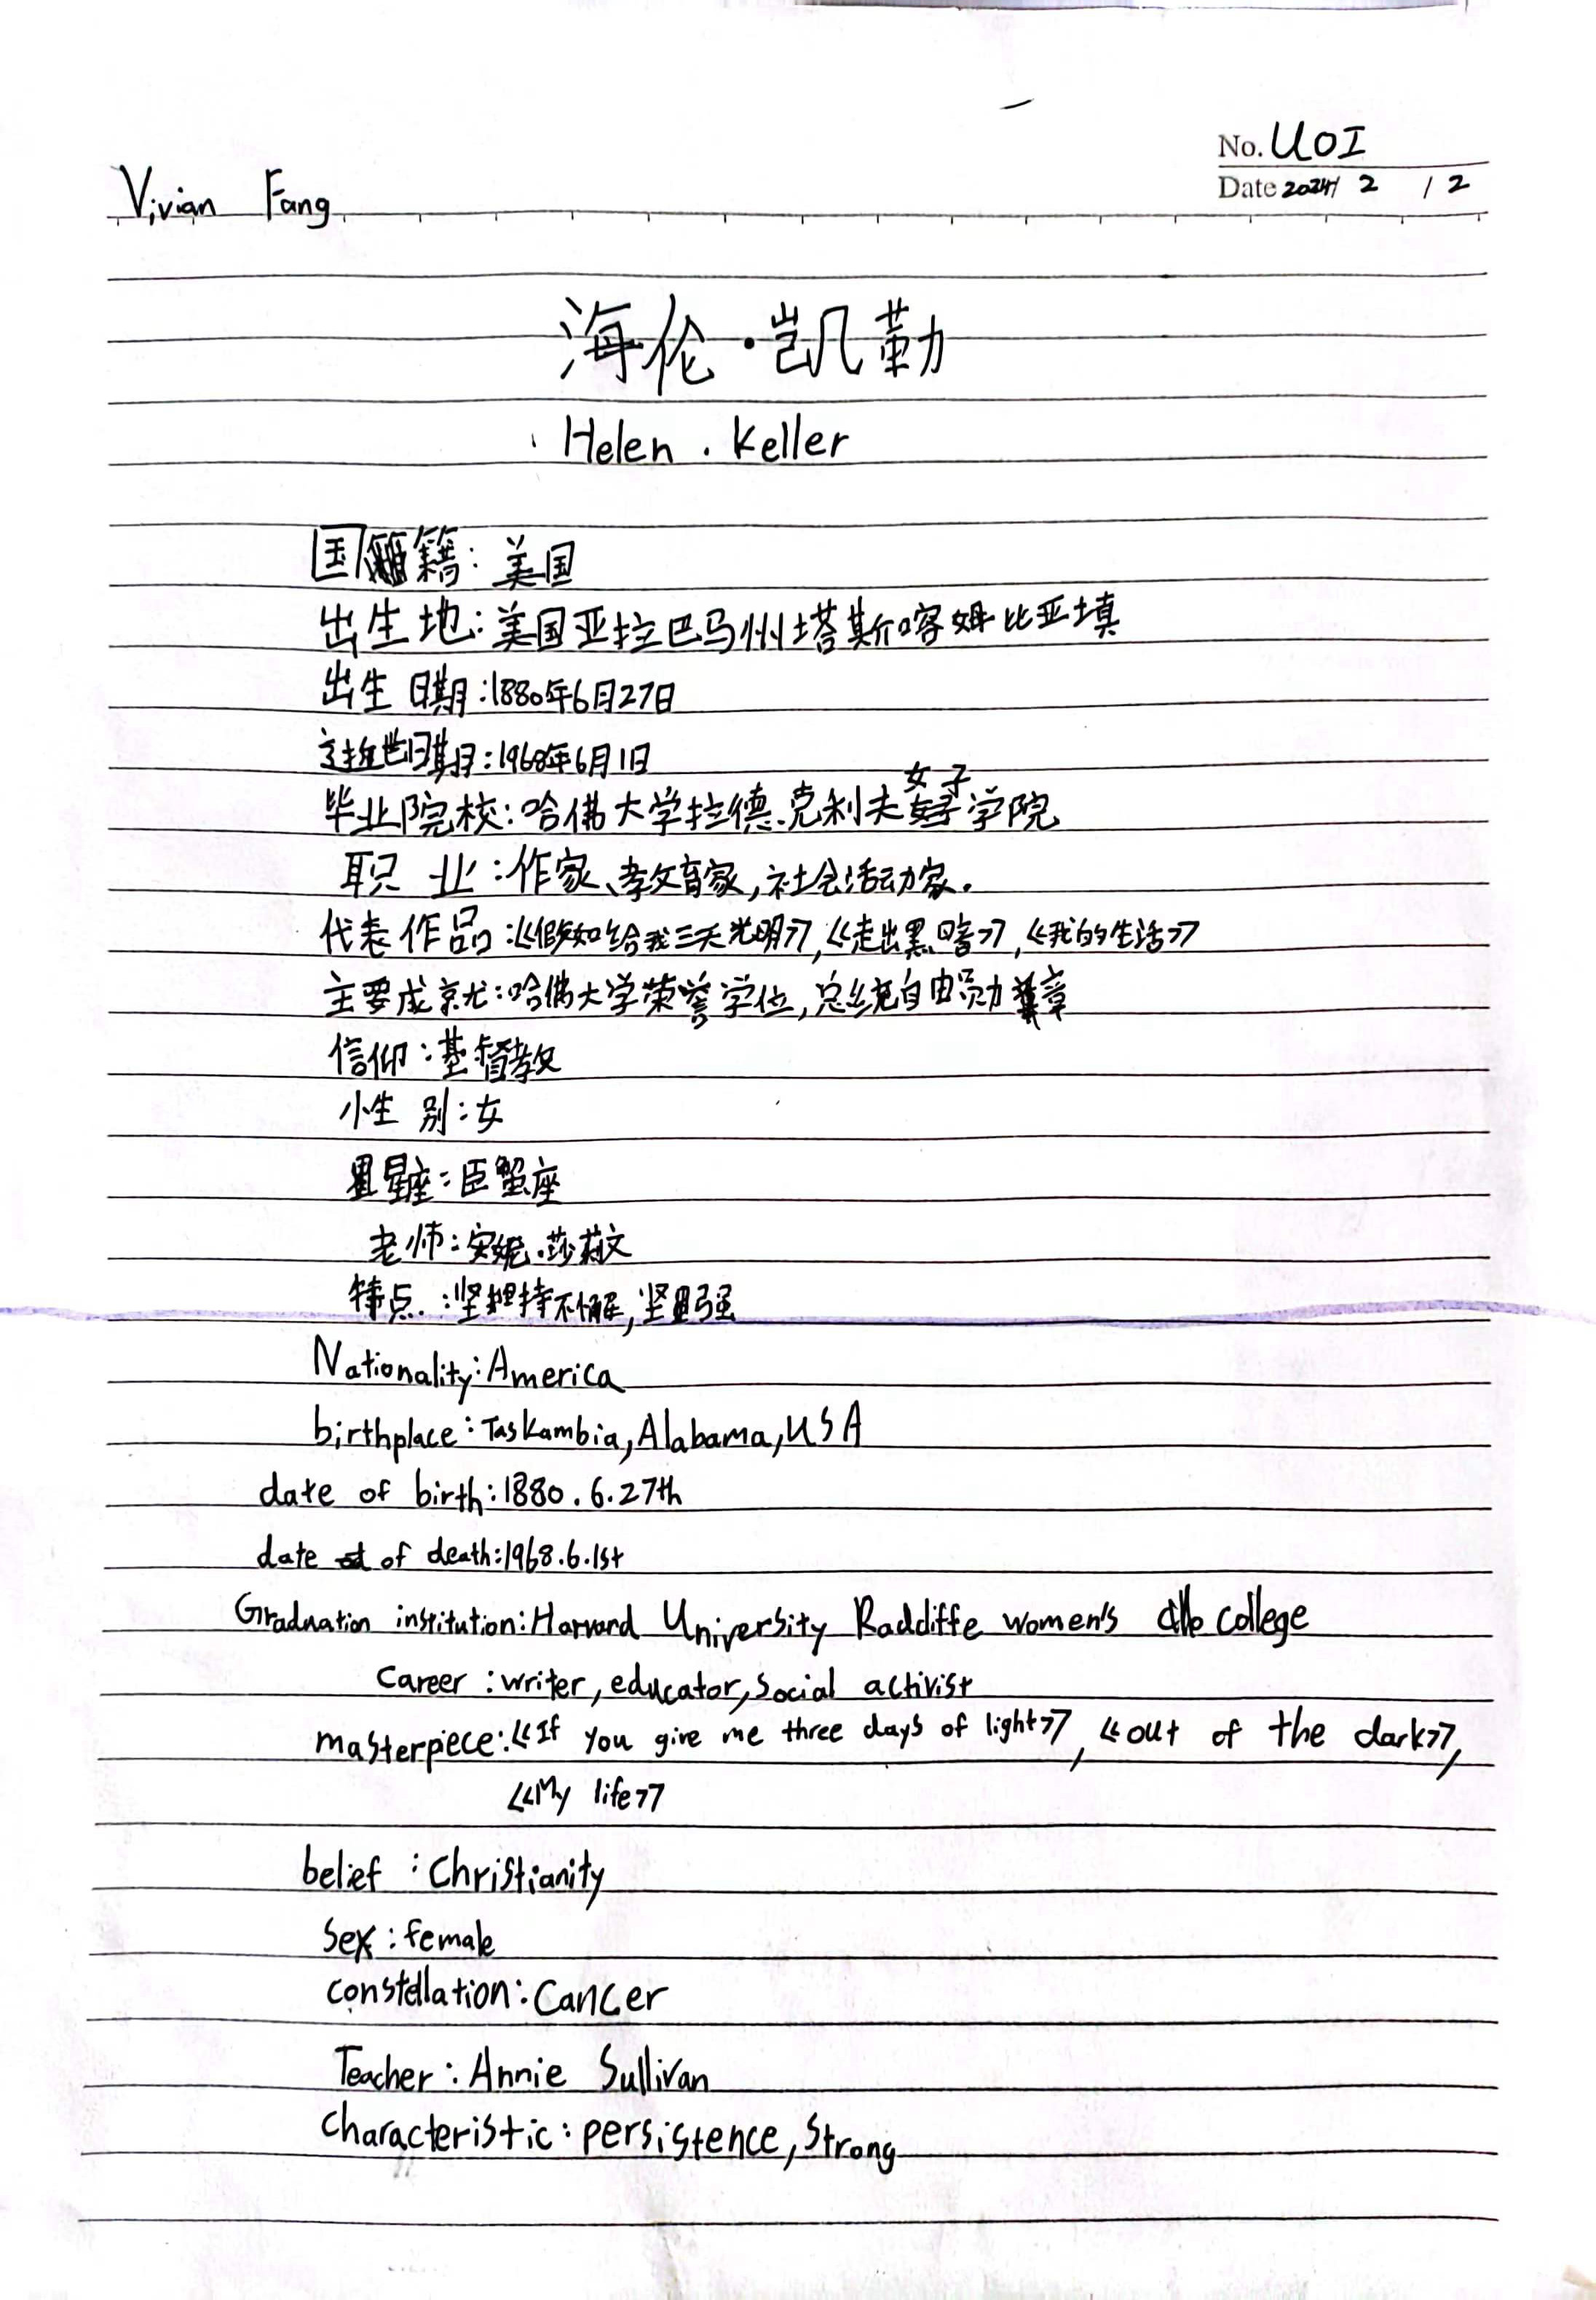 No. UOI
Date 2024/ 2 / 2
Vivian Fang
海伦·凯勒
Helen . Keller
国籍: 美国
出生地: 美国亚拉巴马州塔斯喀姆比亚填
出生日期:1880年6月27日
逝世日期:1968年6月1日
毕业院校:哈佛大学拉德克利夫女子学院
职业:作家、教育家,社会活动家.
代表作品:《假如给我三天光明》,《走出黑暗》,《我的生活》
主要成就:哈佛大学荣誉学位,总统自由勋章
信仰:基督教
性别:女
星座:巨蟹座
老师:安妮.莎莉文
特点.:坚持不懈,坚强
Nationality:America
birthplace:Taskambia,Alabama,USA
date of birth:1880.6.27th
date of death:1968.6.1st
Graduation institution:Harvard University Radcliffe women's college
Career :writer,educator,social activist
masterpiece:《If you give me three days of light》,《out of the dark》,
《My life》
belief :Christianity
Sex:female
constellation:Cancer
Teacher:Annie Sullivan
Characteristic:persistence,Strong